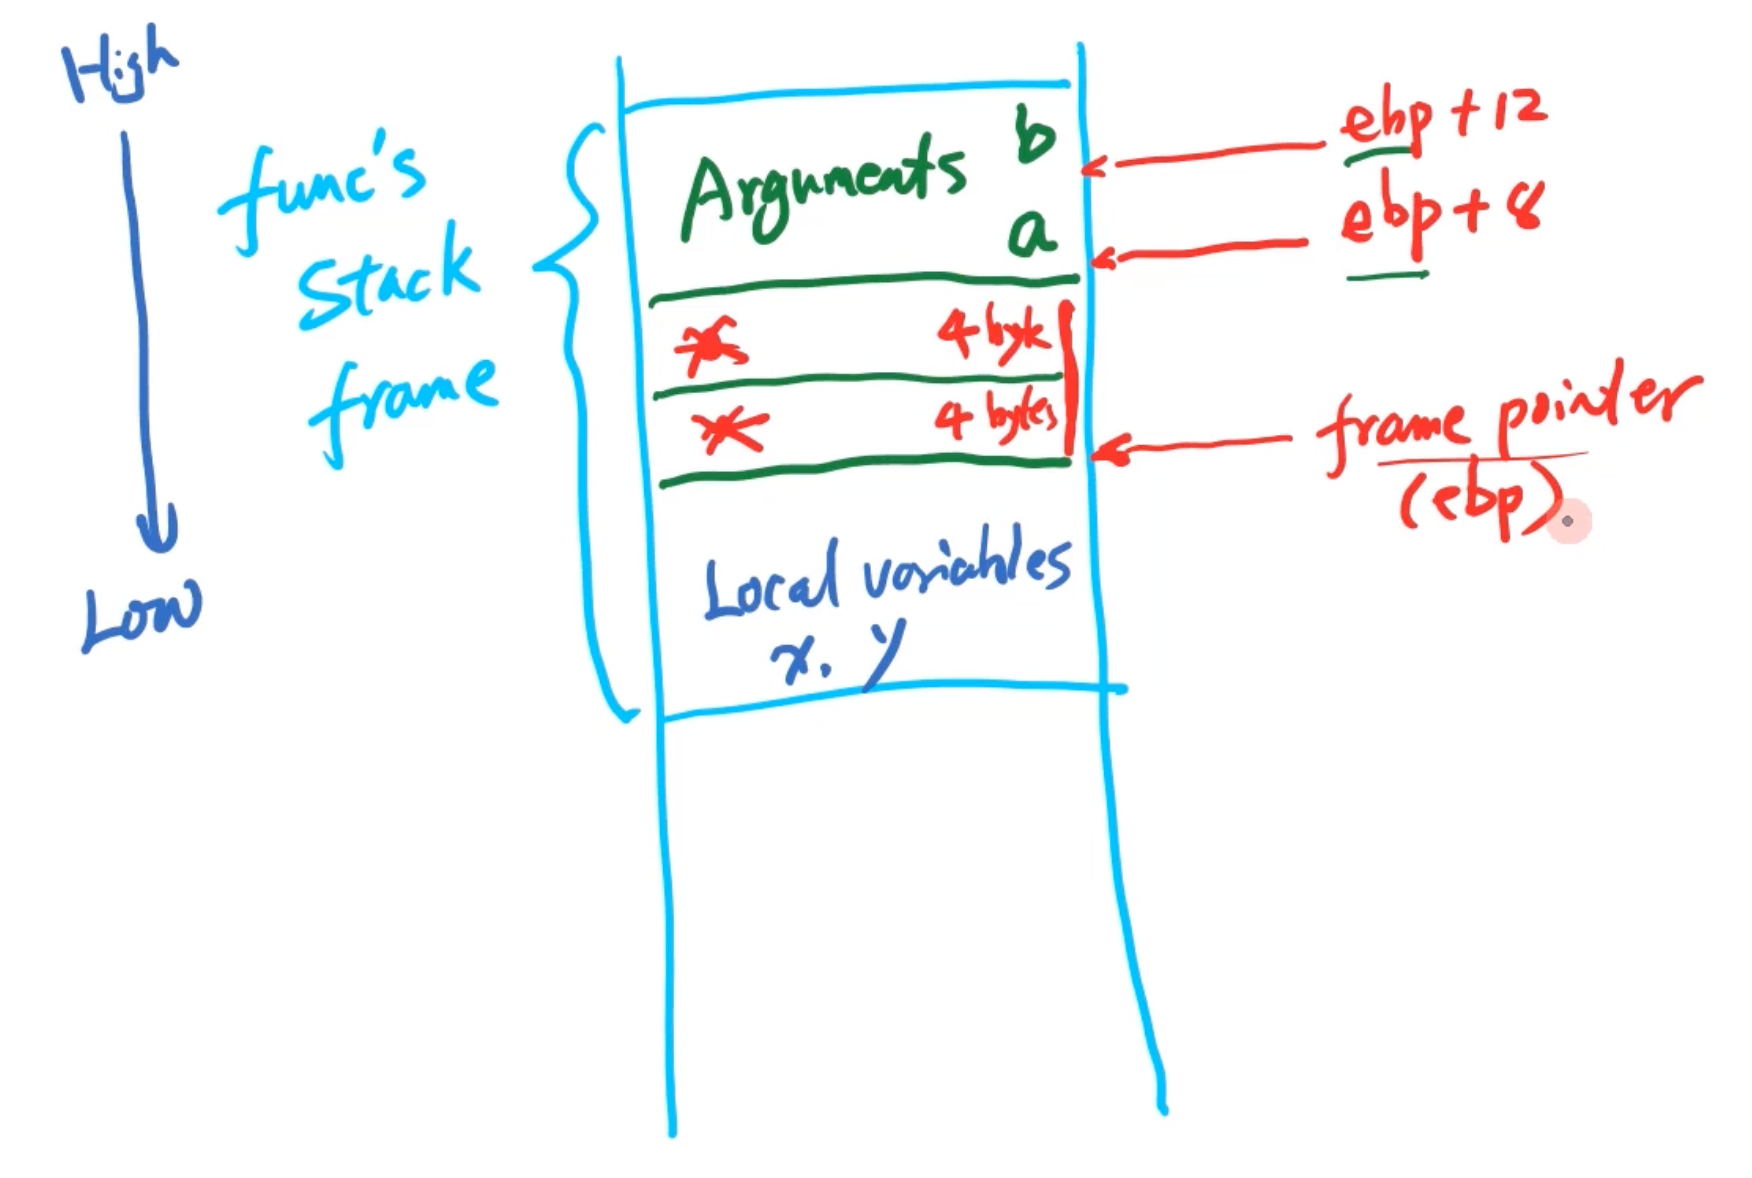 High
func's
Stack
frame
Low
Arguments
b
a
4 byte
4 bytes
Local variables
x, y
ebp + 12
ebp + 8
frame pointer
(ebp)